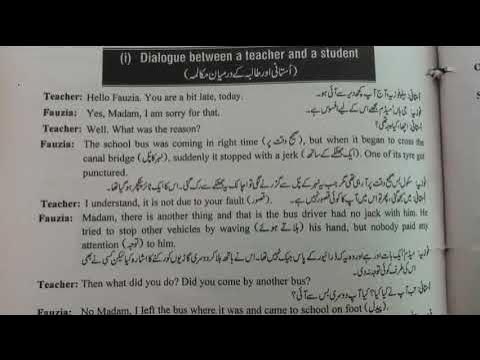 (i) Dialogue between a teacher and a student
(اُستانی اور طالبہ کے درمیان مکالمہ)
Teacher: Hello Fauzia. You are a bit late, today.
اُستانی: ہیلو فوزیہ! آج آپ کچھ دیر سے آئی ہو۔
Fauzia: Yes, Madam, I am sorry for that.
فوزیہ: جی ہاں میڈم! مجھے اس کے لیے افسوس ہے۔
Teacher: Well. What was the reason?
اُستانی: اچھا! کیا وجہ تھی؟
Fauzia: The school bus was coming in right time (صحیح وقت پر), but when it began to cross the
canal bridge (نہر کا پل), suddenly it stopped with a jerk (ایک جھٹکے کے ساتھ). One of its tyre got
punctured.
فوزیہ: سکول بس صحیح وقت پر آ رہی تھی مگر جب یہ نہر کے پل سے گزرنے لگی تو اچانک یہ جھٹکے سے رک گئی۔ اس کا ایک ٹائر پنکچر ہو گیا تھا۔
Teacher: I understand, it is not due to your fault (قصور).
اُستانی: میں سمجھ گئی، پھر تو اس میں آپ کا کوئی قصور نہیں ہے۔
Fauzia: Madam, there is another thing and that is the bus driver had no jack with him. He
tried to stop other vehicles by waving (ہلاتے ہوئے) his hand, but nobody paid any
attention (توجہ) to him.
فوزیہ: میڈم ایک بات اور ہے اور وہ یہ کہ ڈرائیور کے پاس جیک نہیں تھا۔ اس نے ہاتھ ہلا کر دوسری گاڑیوں کو رکنے کا اشارہ کیا لیکن کسی نے بھی
اس کی طرف کوئی توجہ نہ دی۔
Teacher: Then what did you do? Did you come by another bus?
اُستانی: تب آپ نے کیا کیا؟ کیا آپ دوسری بس سے آئی؟
Fauzia: No Madam, I left the bus where it was and came to school on foot (پیدل).